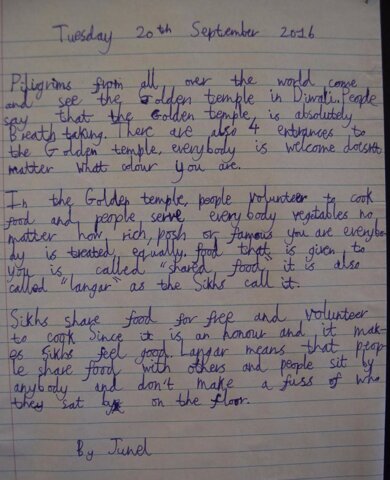 Tuesday 20th September 2016
Piligrims from all over the world come
and see the Golden temple in Diwali. People
say that the Golden temple, is absolutely
Breath taking. There are also 4 entrances to
the Golden temple, everybody is welcome doesnt
matter what colour you are.
In the Golden temple, people volunteer to cook
food and people serve everybody vegetables no
matter how rich, posh or famous you are everybo-
dy is treated equally. food that is given to
you is called "shared food" it is also
called "langar" as the Sikhs call it.
Sikhs share food for free and volunteer
to cook Since it is an honour and it mak-
es Sikhs feel good. Langar means that peop-
le share food with others and people sit by
anybody and don't make a fuss of who
they sat by on the floor.
By Junel